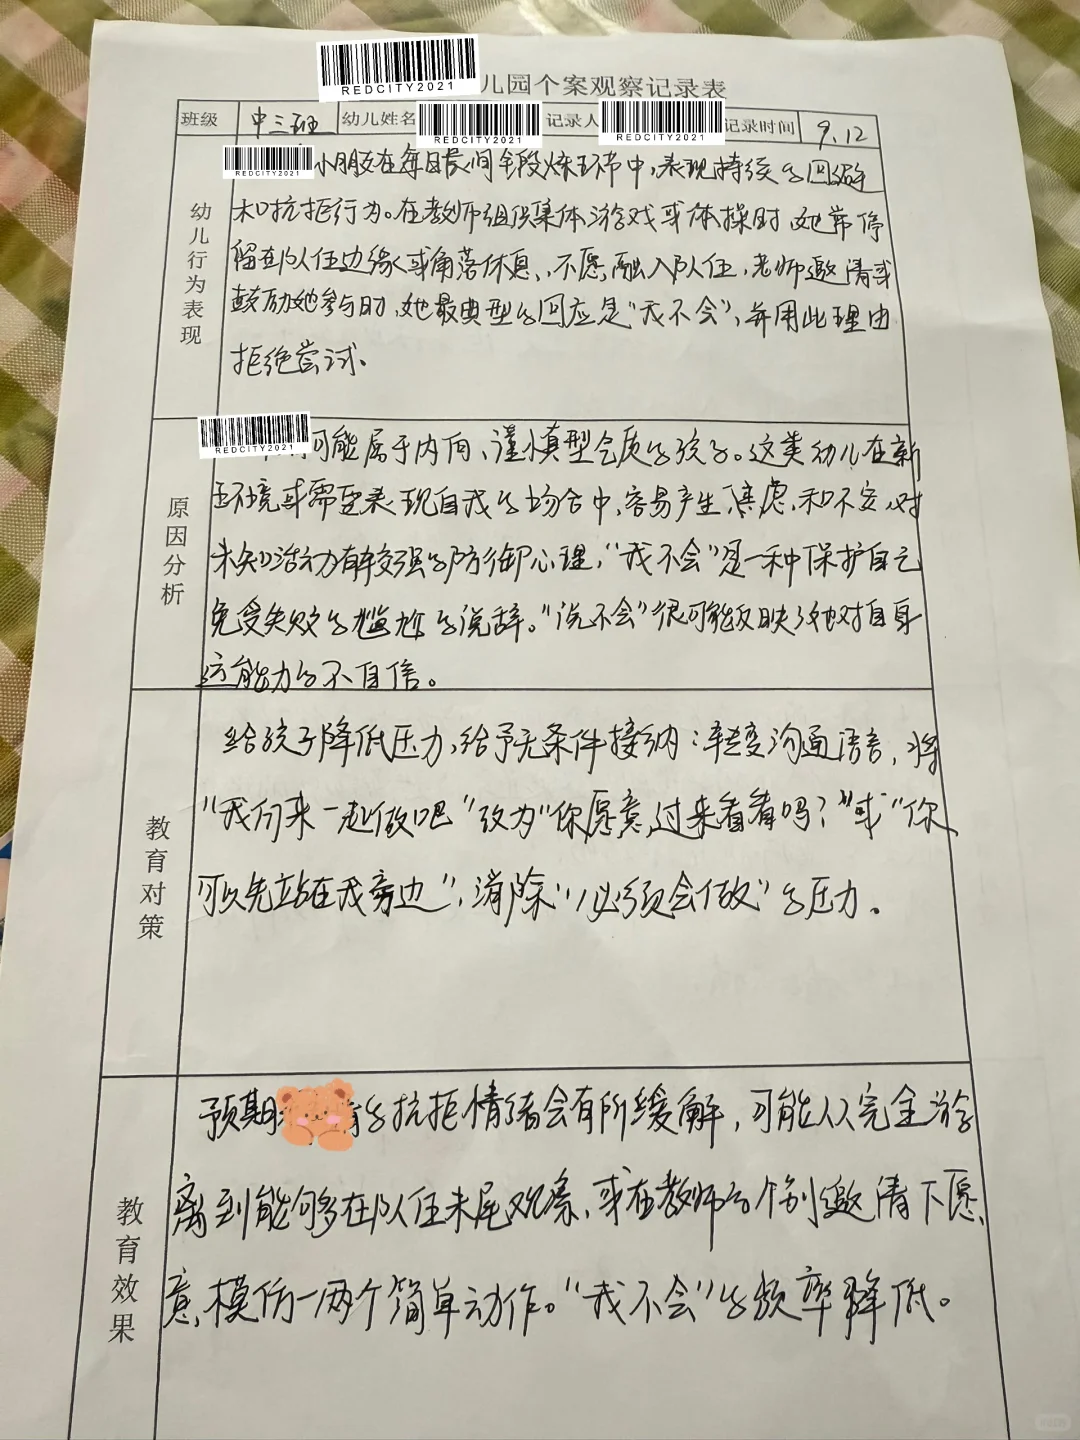 REDCITY2021
儿园个案观察记录表
班级 中三班 幼儿姓名 REDCITY2021 记录人 REDCITY2021 记录时间 9.12
REDCITY2021
小朋友在每日晨间锻炼环节中,表现持续的回避
和抗拒行为。在教师组织集体游戏或体操时,她常停
留在队伍边缘或角落休息、不愿融入队伍,老师邀请或
鼓励她参与时,她最典型的回应是“我不会”,并用此理由
拒绝尝试。
幼儿行为表现
REDCITY2021
可能属于内向、谨慎型气质的孩子。这类幼儿在新
环境或需要表现自我的场合中,容易产生焦虑和不安,对
未知活动有较强的防御心理,“我不会”是一种保护自己
免受失败的尴尬的说辞。“说不会”很可能反映了她对自身
运能力的不自信。
原因分析
给孩子降低压力,给予无条件接纳:转变沟通语言,将
“我们来一起做吧“改为“你愿意过来看看吗?”或“你
可以先站在我旁边”,消除“必须会做”的压力。
教育对策
预期 的抗拒情绪会有所缓解,可能从完全游
离到能够在队伍末尾观察、或在教师的个别邀请下愿
意模仿一两个简单动作。“我不会”的频率降低。
教育效果